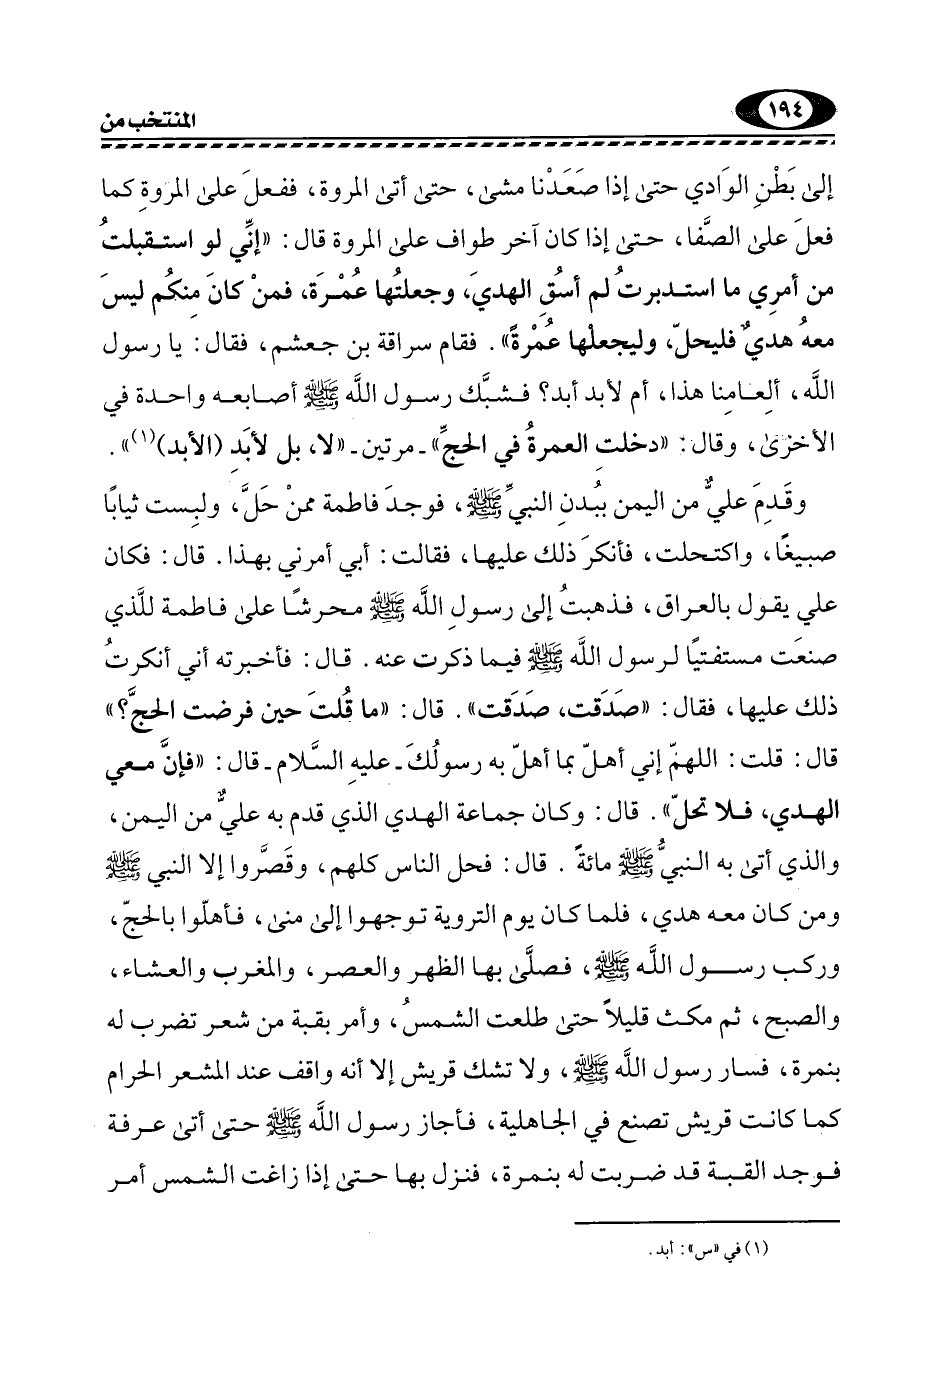 ١٩٤
المنتخب من
إلىٰ بَطْنِ الوَادي حتىٰ إذا صَعَدْنا مشىٰ، حتىٰ أتىٰ المروة، ففعلَ علىٰ المروةِ كما
فعلَ علىٰ الصَّفا، حتىٰ إذا كان آخر طواف علىٰ المروة قال: «إنِّي لو استقبلتُ
من أمرِي ما استدبرتُ لم أسُقِ الهديَ، وجعلتُها عُمْرَة، فمنْ كانَ منكُم ليسَ
معه هديٌ فليحلّ، وليجعلْها عُمْرةً». فقام سراقة بن جعشم، فقال: يا رسول
اللَّه، ألِعامِنا هذا، أم لأبد أبد؟ فشبَّك رسول اللَّه ﷺ أصابعه واحدة في
الأخرىٰ، وقال: «دخلتِ العمرةُ في الحجِّ» ـ مرتين ـ «لا، بل لأبَد (الأبد)(١)».
وقَدِمَ عليٌّ من اليمن ببُدنِ النبيِّ ﷺ، فوجدَ فاطمة ممنْ حَلَّ، ولبِست ثيابًا
صبيغًا، واكتحلت، فأنكرَ ذلك عليها، فقالت: أبي أمرني بهذا. قال: فكان
علي يقول بالعراق، فذهبتُ إلىٰ رسولِ اللَّه ﷺ محرشًا علىٰ فاطمة للَّذي
صنعَت مستفتيًا لرسول اللَّه ﷺ فيما ذكرت عنه. قال: فأخبرته أني أنكرتُ
ذلك عليها، فقال: «صَدَقَت، صَدَقَت». قال: «ما قُلتَ حين فرضت الحجَّ؟»
قال: قلت: اللهمّ إني أهلّ بما أهلّ به رسولُكَ ـ عليهِ السَّلام ـ قال: «فإنَّ معي
الهدي، فلا تحلّ». قال: وكان جماعة الهدي الذي قدم به عليٌّ من اليمن،
والذي أتىٰ به النبيُّ ﷺ مائةً . قال: فحل الناس كلهم، وقَصَّروا إلا النبي ﷺ
ومن كان معه هدي، فلما كان يوم التروية توجهوا إلىٰ منىٰ، فأهلّوا بالحجّ،
وركب رسول اللَّه ﷺ، فصلَّىٰ بها الظهر والعصر، والمغرب والعشاء،
والصبح، ثم مكث قليلاً حتىٰ طلعت الشمسُ، وأمر بقبة من شعر تضرب له
بنمرة، فسار رسول اللَّه ﷺ، ولا تشك قريش إلا أنه واقف عند المشعر الحرام
كما كانت قريش تصنع في الجاهلية، فأجاز رسول اللَّه ﷺ حتىٰ أتىٰ عرفة
فوجد القبة قد ضربت له بنمرة، فنزل بها حتىٰ إذا زاغت الشمس أمر
(١) في «س»: أبد.